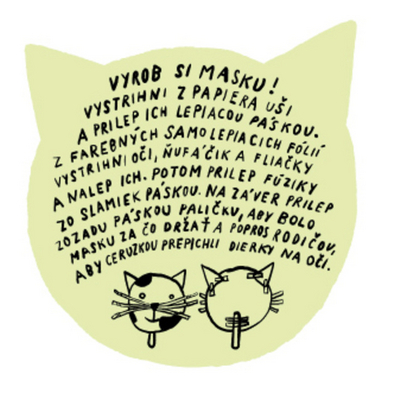 VYROB SI MASKU!
VYSTRIHNI Z PAPIERA UŠI
A PRILEP ICH LEPIACOU PÁSKOU.
Z FAREBNÝCH SAMOLEPIACICH FÓLIÍ
VYSTRIHNI OČI, ŇUFÁČIK A FLIAČKY
A NALEP ICH. POTOM PRILEP FÚZIKY
ZO SLAMIEK PÁSKOU. NA ZÁVER PRILEP
ZOZADU PÁSKOU PALIČKU, ABY BOLO
MASKU ZA ČO DRŽAŤ A POPROS RODIČOV,
ABY CERUZKOU PREPICHLI DIERKY NA OČI.